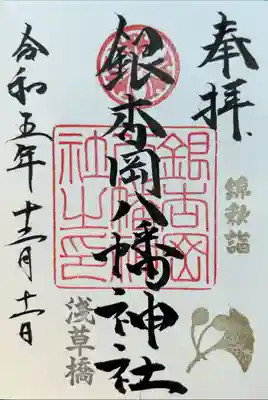 奉拝
錦秋詣
銀杏岡八幡神社
銀杏岡
八幡神
社之印
浅草橋
令和五年